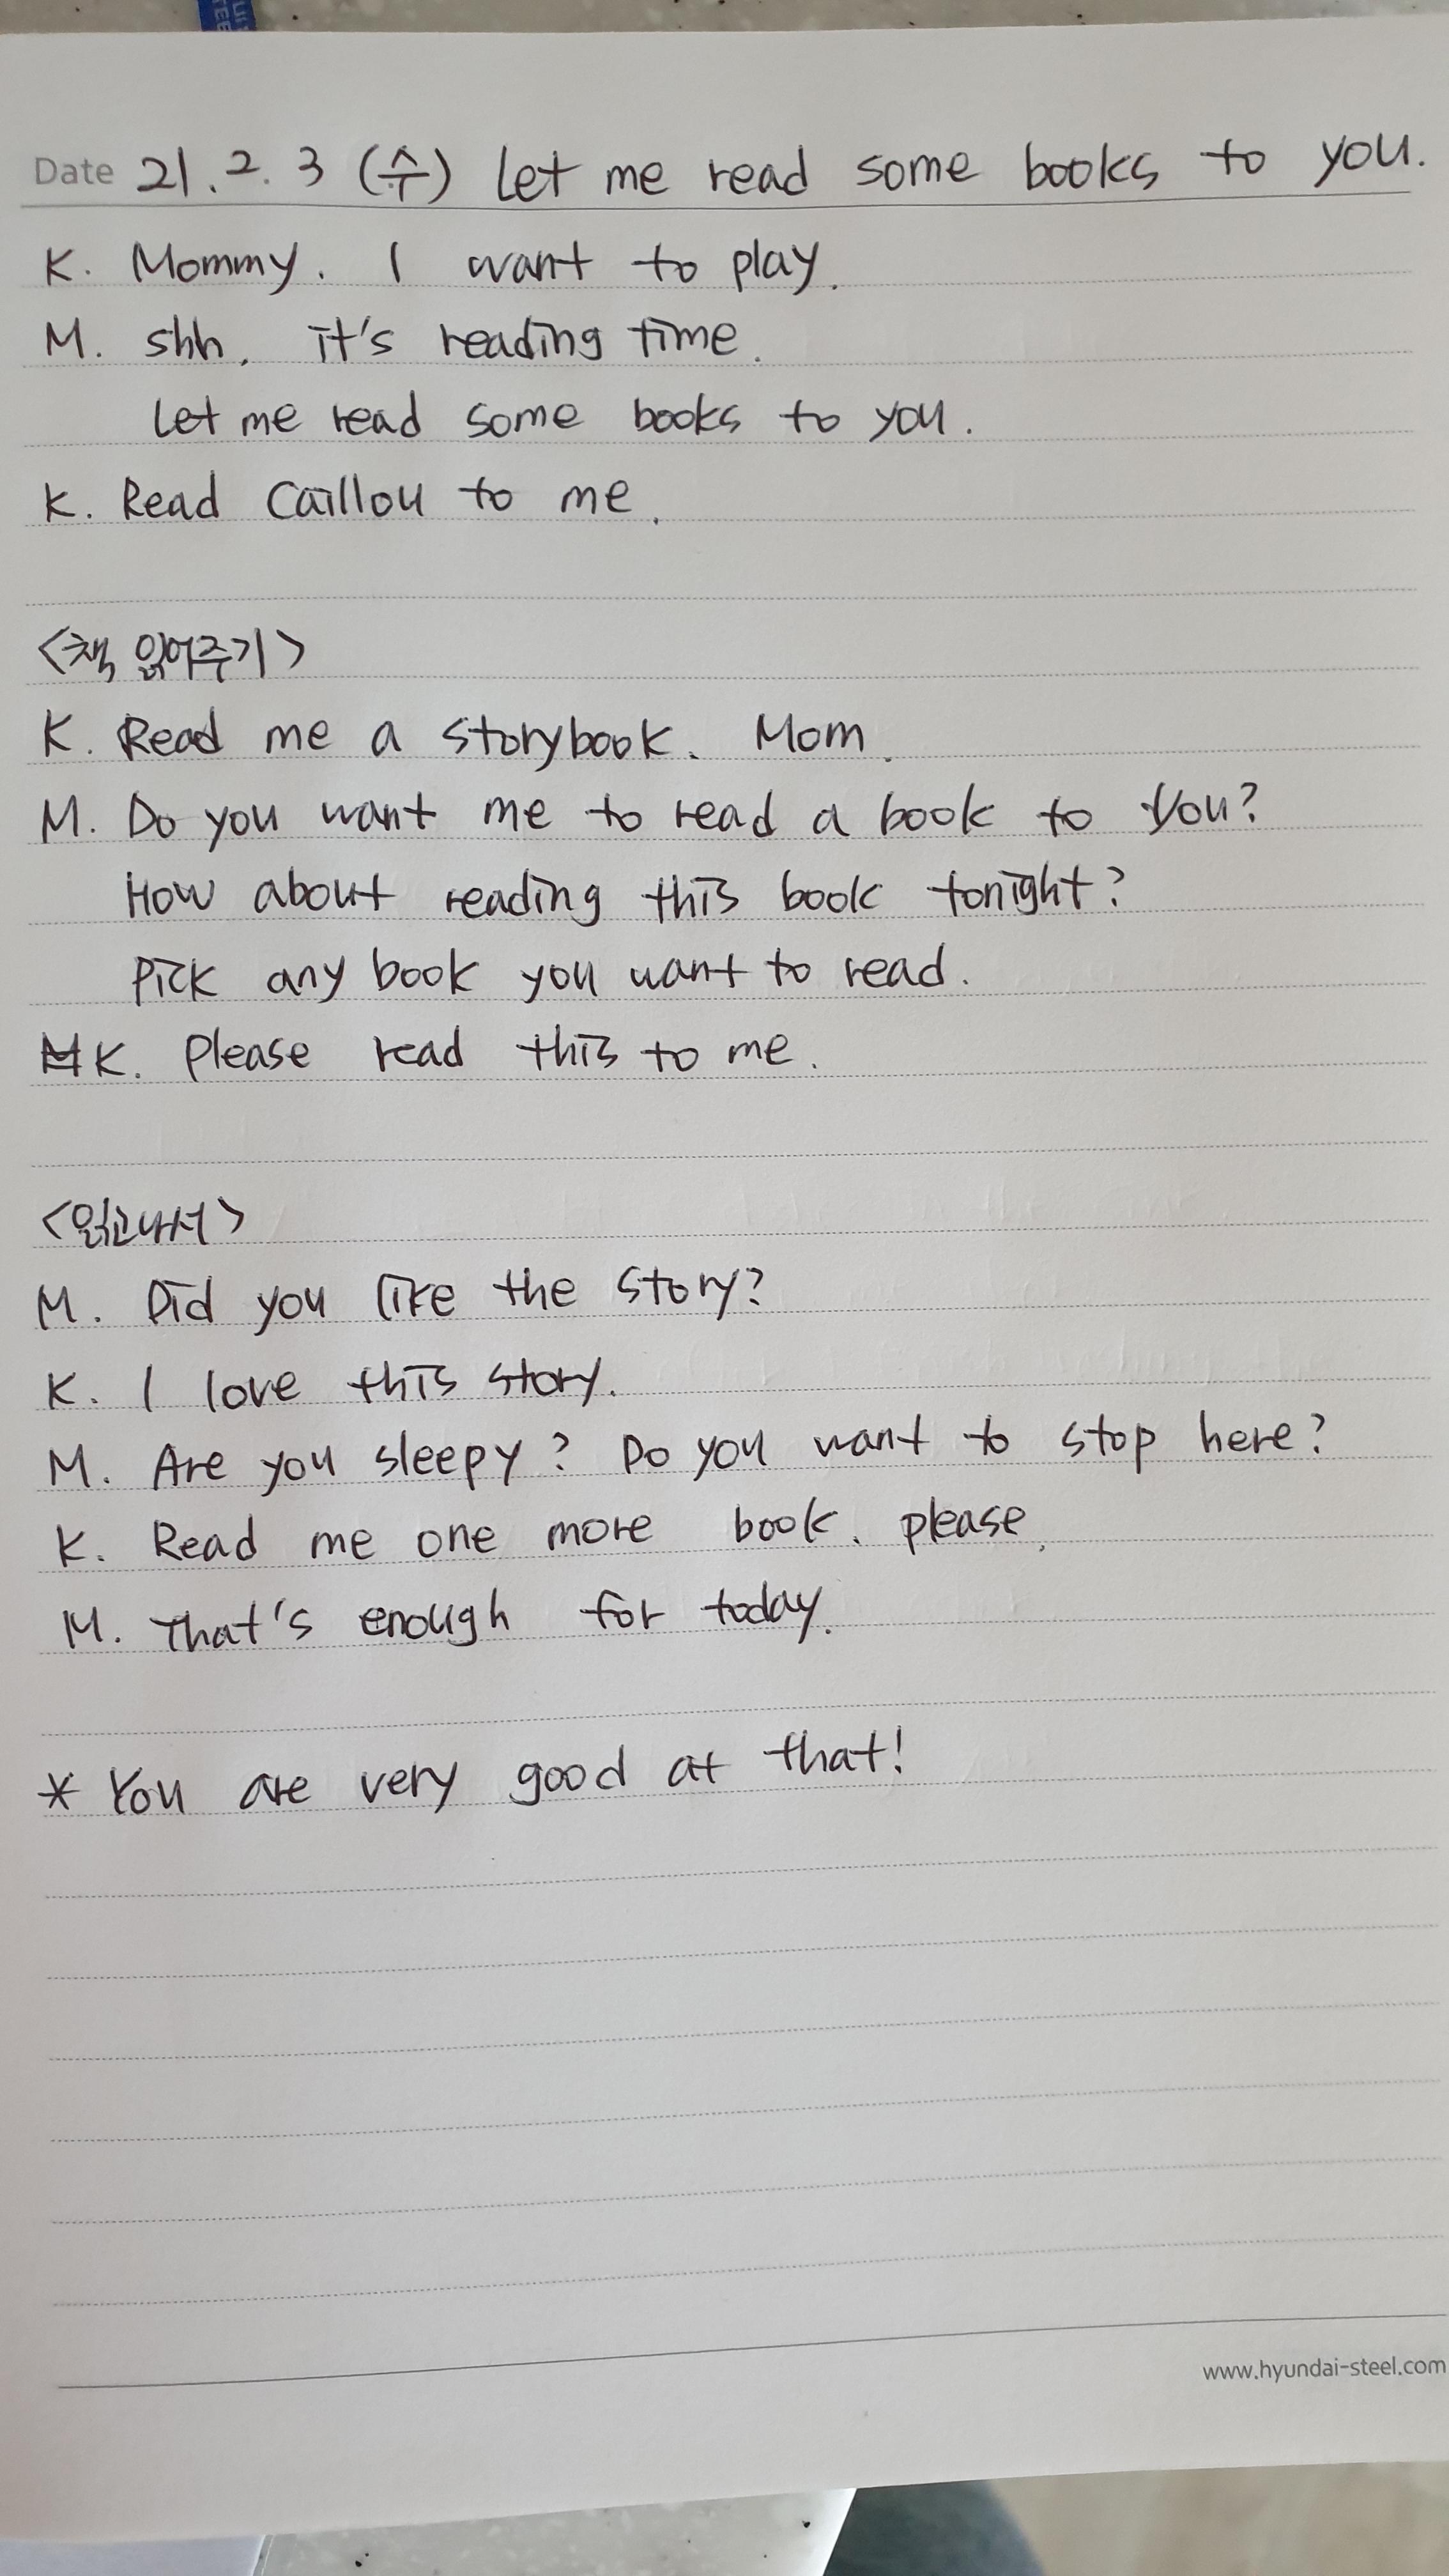 Date 21. 2. 3 (수) Let me read some books to you.
K. Mommy. I want to play.
M. shh. it's reading time.
Let me read some books to you.
K. Read Caillou to me.
<책 읽어주기>
K. Read me a storybook. Mom.
M. Do you want me to read a book to you?
How about reading this book tonight?
Pick any book you want to read.
K. Please read this to me.
<읽고나서>
M. Did you like the story?
K. I love this story.
M. Are you sleepy? Do you want to stop here?
K. Read me one more book. please.
M. That's enough for today.
* You are very good at that!
www.hyundai-steel.com